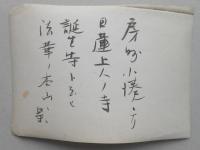 房州小湊ノ
日蓮上人ノ寺
誕生寺トスヒ
法華ノ本山